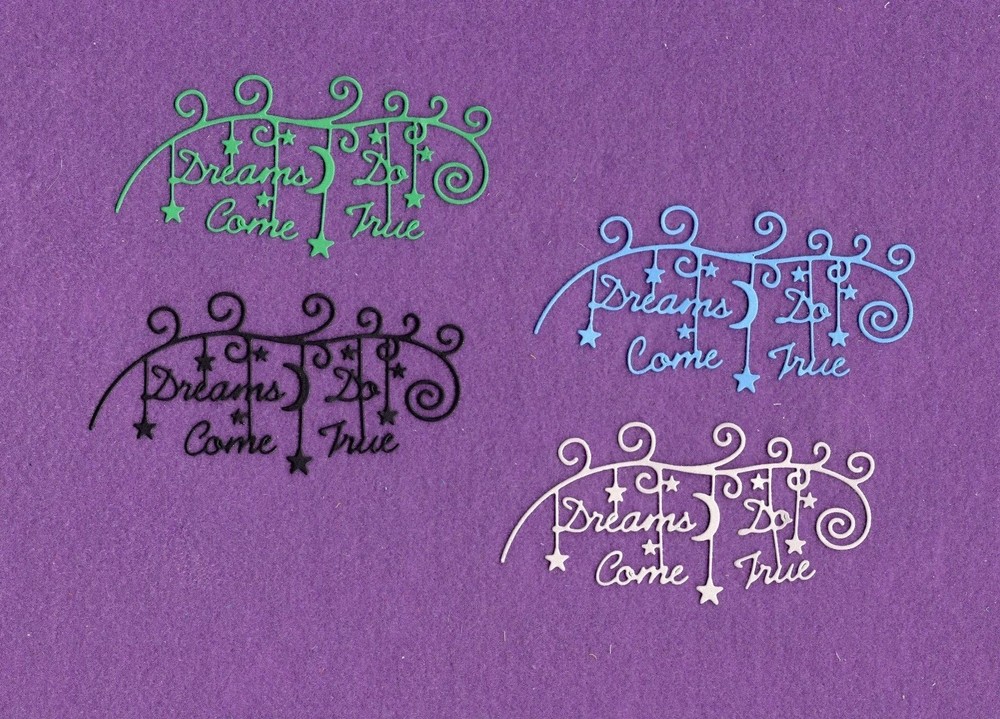 Dreams Do
Come True
Dreams Do
Come True
Dreams Do
Come True
Dreams Do
Come True